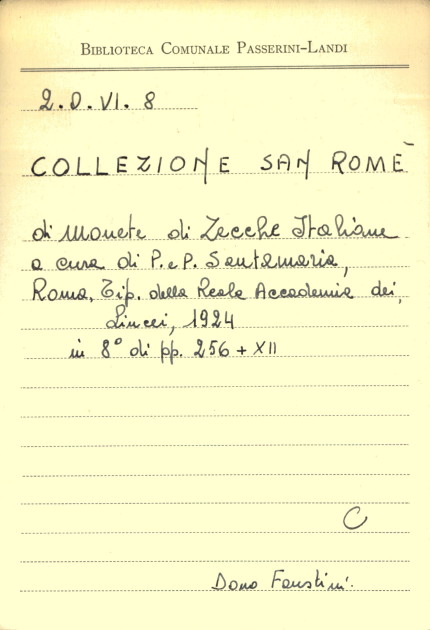 BIBLIOTECA COMUNALE PASSERINI-LANDI
2.D.VI.8
COLLEZIONE SAN ROMÈ
di Monete di Zecche Italiane
a cura di P. e P. Santamaria,
Roma, Tip. della Reale Accademia dei
Lincei, 1924
in 8° di pp. 256 + XII
C
Dono Faustini.